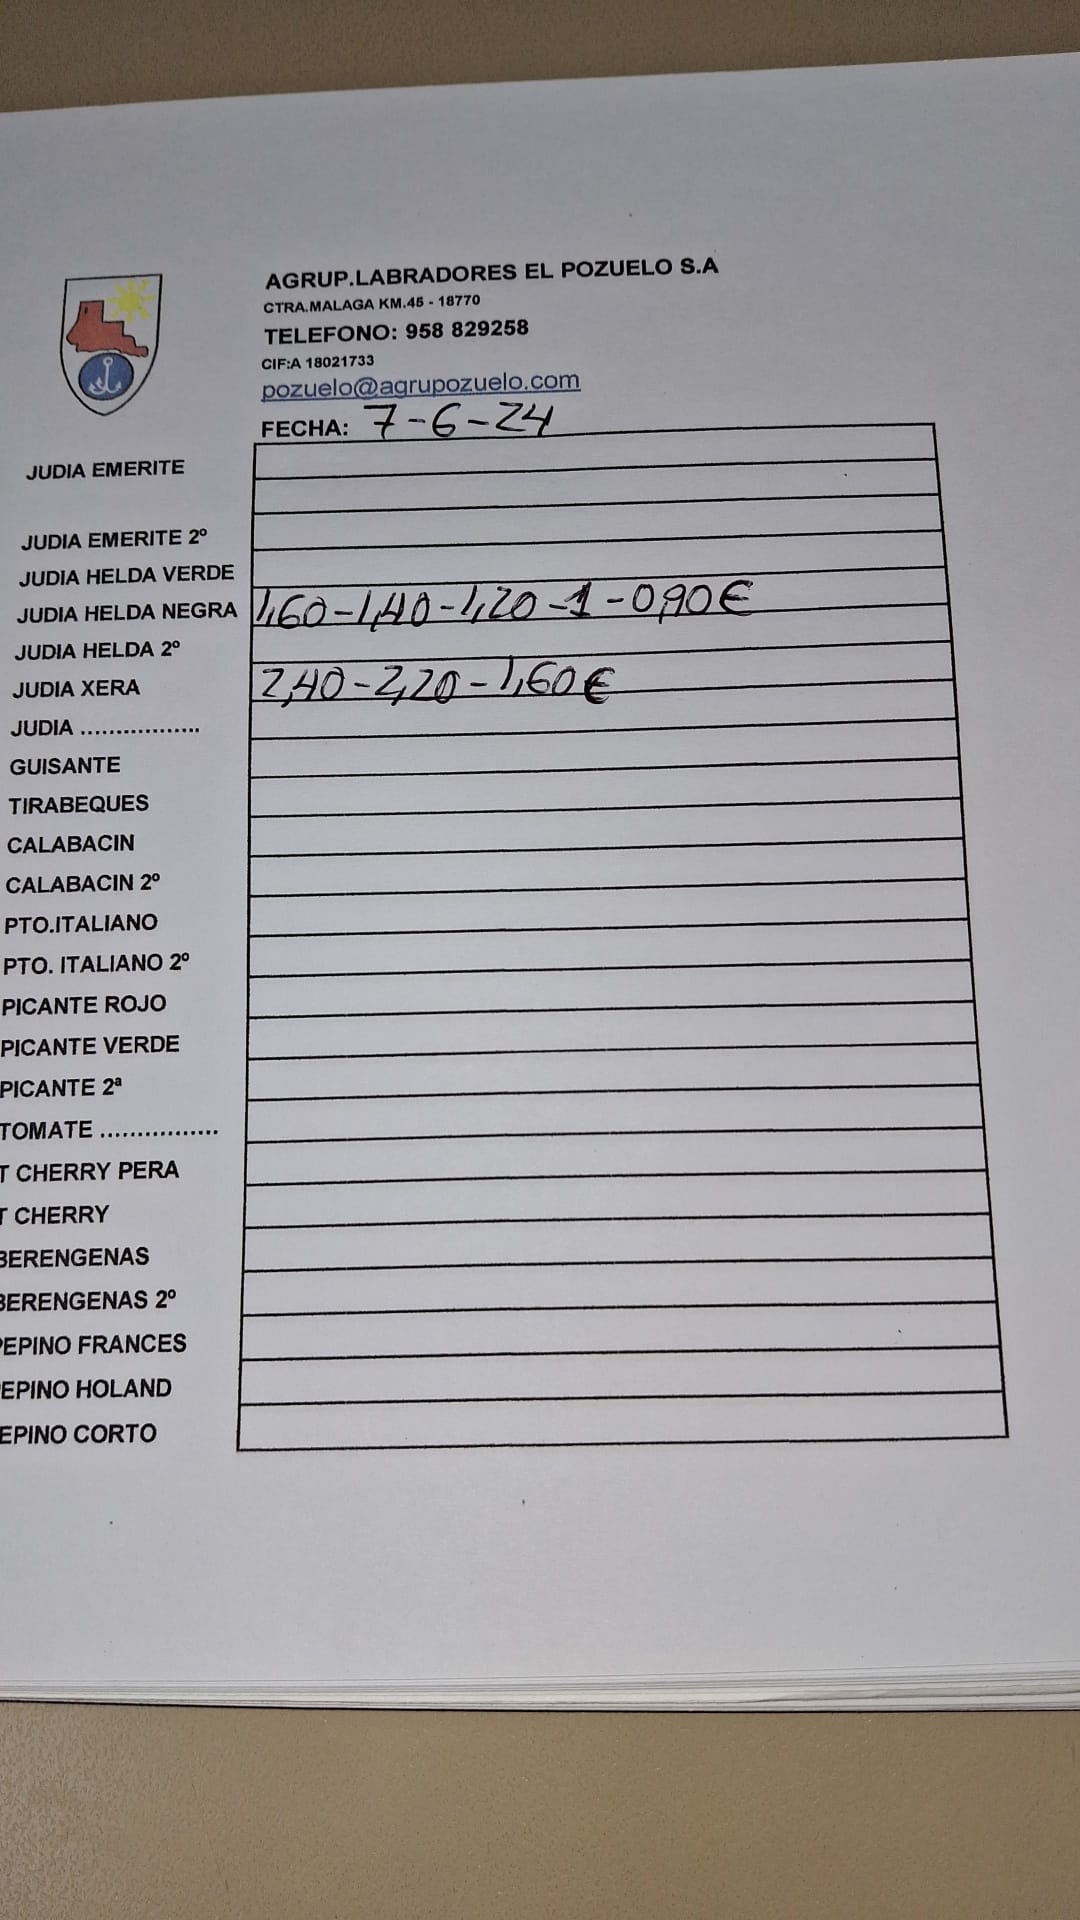 AGRUP.LABRADORES EL POZUELO S.A
CTRA.MALAGA KM.45 - 18770
TELEFONO: 958 829258
CIF:A 18021733
pozuelo@agrupozuelo.com
FECHA: 7-6-24
JUDIA EMERITE
JUDIA EMERITE 2º
JUDIA HELDA VERDE
JUDIA HELDA NEGRA 1,60-1,40-1,20-1-0,90€
JUDIA HELDA 2º
JUDIA XERA 2,40-2,20-1,60€
JUDIA .................
GUISANTE
TIRABEQUES
CALABACIN
CALABACIN 2º
PTO.ITALIANO
PTO. ITALIANO 2º
PICANTE ROJO
PICANTE VERDE
PICANTE 2ª
TOMATE ................
T CHERRY PERA
T CHERRY
BERENGENAS
BERENGENAS 2º
PEPINO FRANCES
EPINO HOLAND
EPINO CORTO